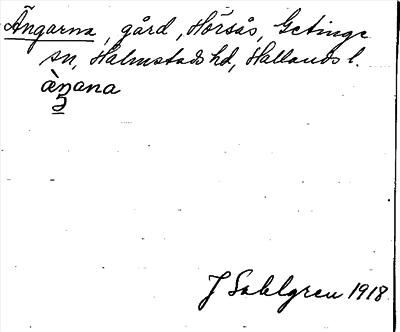 Ängarna, gård, Hörsås, Getinge
sn, Halmstads hd, Hallands l.
J Sahlgren 1918